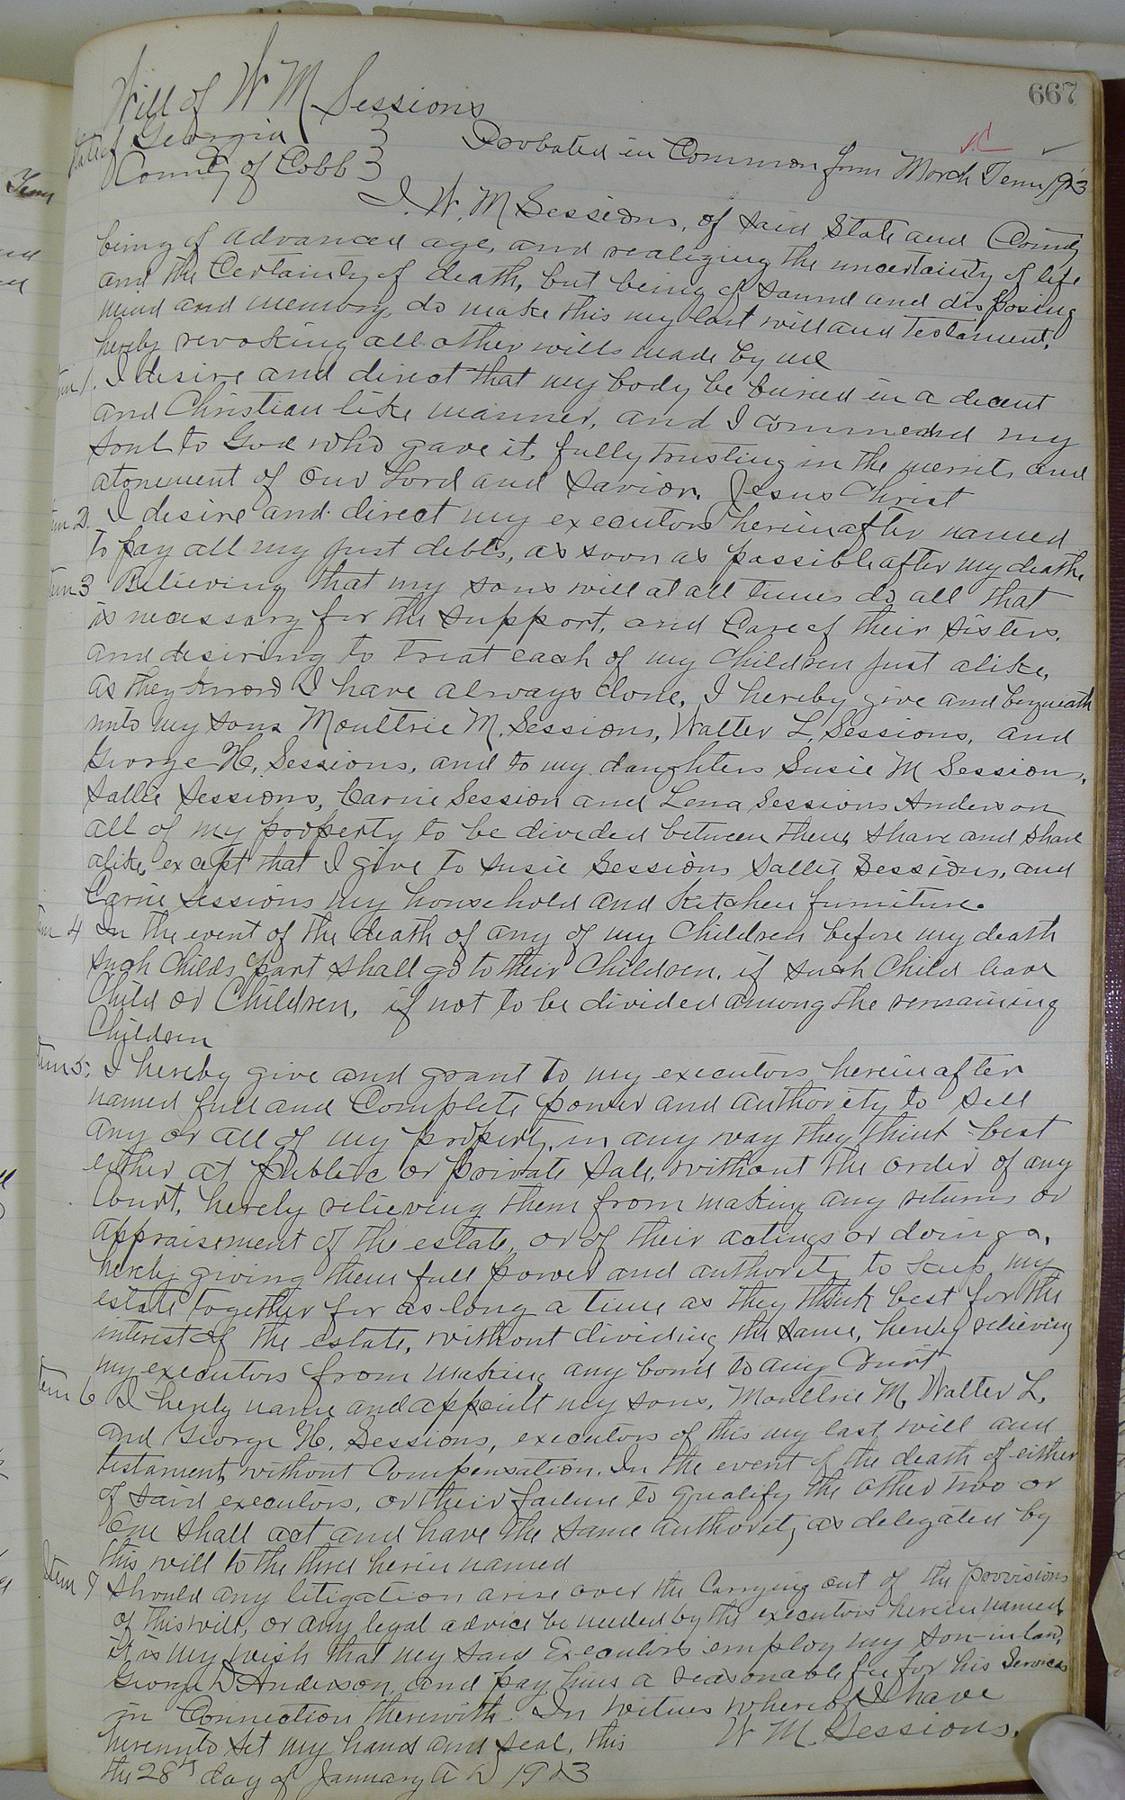 667
Will of W M Sessions
State of Georgia }
County of Cobb }
Probated in Common form March Term 1923
I, W. M Sessions, of said State and County
being of advanced age, and realizing the uncertainty of life
and the Certainty of death, but being of sound and disposing
mind and memory, do make this my last will and Testament,
hereby revoking all other wills made by me
Item 1. I desire and direct that my body be buried in a decent
and Christian like manner, and I commend my
soul to God who gave it, fully trusting in the merits and
atonement of our Lord and Savior, Jesus Christ
Item 2. I desire and direct my executors hereinafter named
to pay all my just debts, as soon as possible after my death.
Item 3 Believing that my sons will at all times do all that
is necessary for the support, and Care of their sisters,
and desiring to treat each of my Children just alike,
as they know I have always done, I hereby give and bequeath
unto my sons Moultrie M. Sessions, Walter L. Sessions, and
George H. Sessions, and to my daughters Susie M Session,
Sallie Sessions, Carrie Session and Lena Sessions Anderson
all of my property to be divided between them, share and share
alike, except that I give to Susie Sessions Sallie Sessions, and
Carrie Sessions my household and Kitchen furniture.
Item 4 In the event of the death of any of my Children before my death
such Childs part shall go to their Children, if such Child leave
Child or Children, if not to be divided among the remaining
Children
Item 5: I hereby give and grant to my executors hereinafter
named full and Complete power and authority to sell
any or all of my property, in any way they think best
either at public or private sale, without the order of any
Court, hereby relieving them from making any returns or
appraisement of the estate, or of their actings or doings,
hereby giving them full power and authority to keep my
estate together for as long a time as they think best for the
interest of the estate, without dividing the same, hereby relieving
my executors from making any bond to any Court
Item 6 I hereby name and appoint my sons, Moultrie M, Walter L,
and George H. Sessions, executors of this my last will and
testament, without Compensation. In the event of the death of either
of said executors, or their failure to qualify the other two or
One shall act and have the same authority as delegated by
this will to the three herein named
Item 7 Should any litigation arise over the Carrying out of the provisions
of this will, or any legal advice be needed by the executors herein named
it is my wish that my said Executors employ my son-in-law,
George D. Anderson, and pay him a reasonable fee for his services
in Connection therewith. In witness whereof I have
hereunto set my hand and seal, this W M. Sessions.
the 28th day of January A D 1923